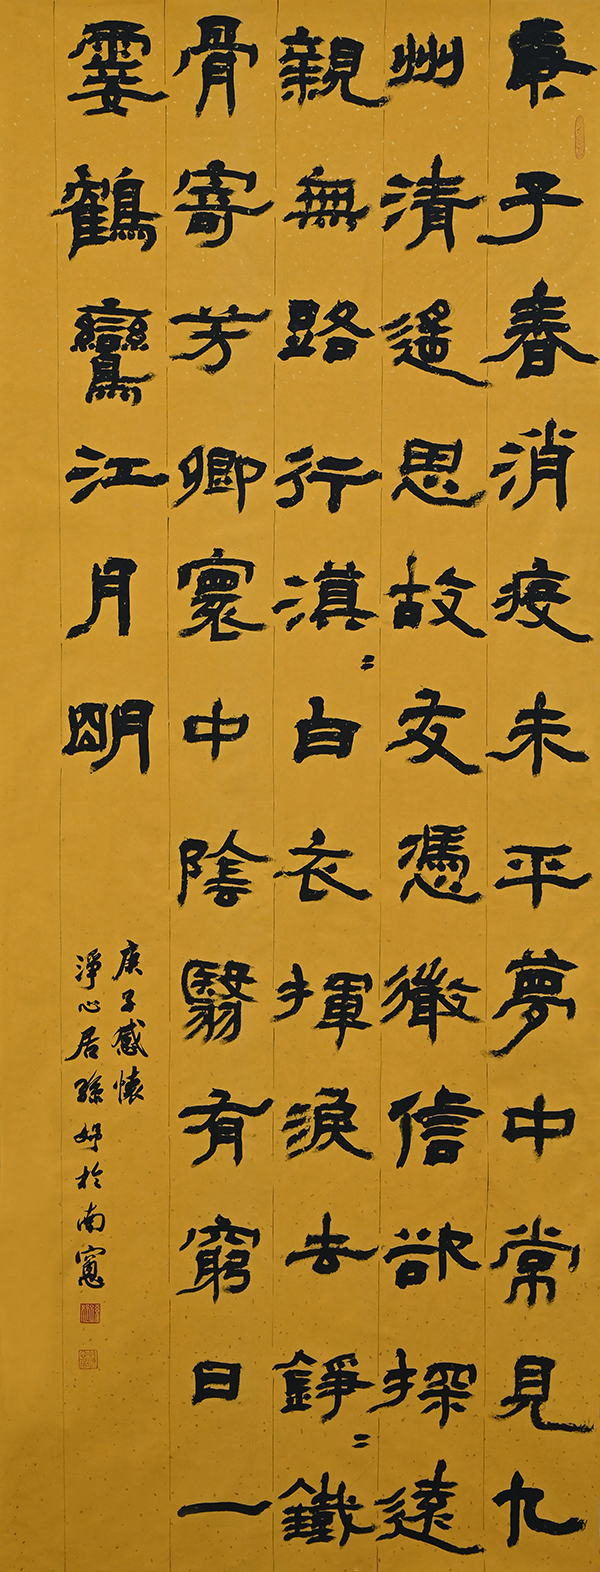 庚子春消疫未平夢中常見九
州清遙思故友憑徵信欲探遠
親無路行漠〻白衣揮淚去錚〻鐵
骨寄芳卿寰中陰翳有窮日一
霎鶴鸞江月明
庚子感懷
淨心居孫妤於南窻